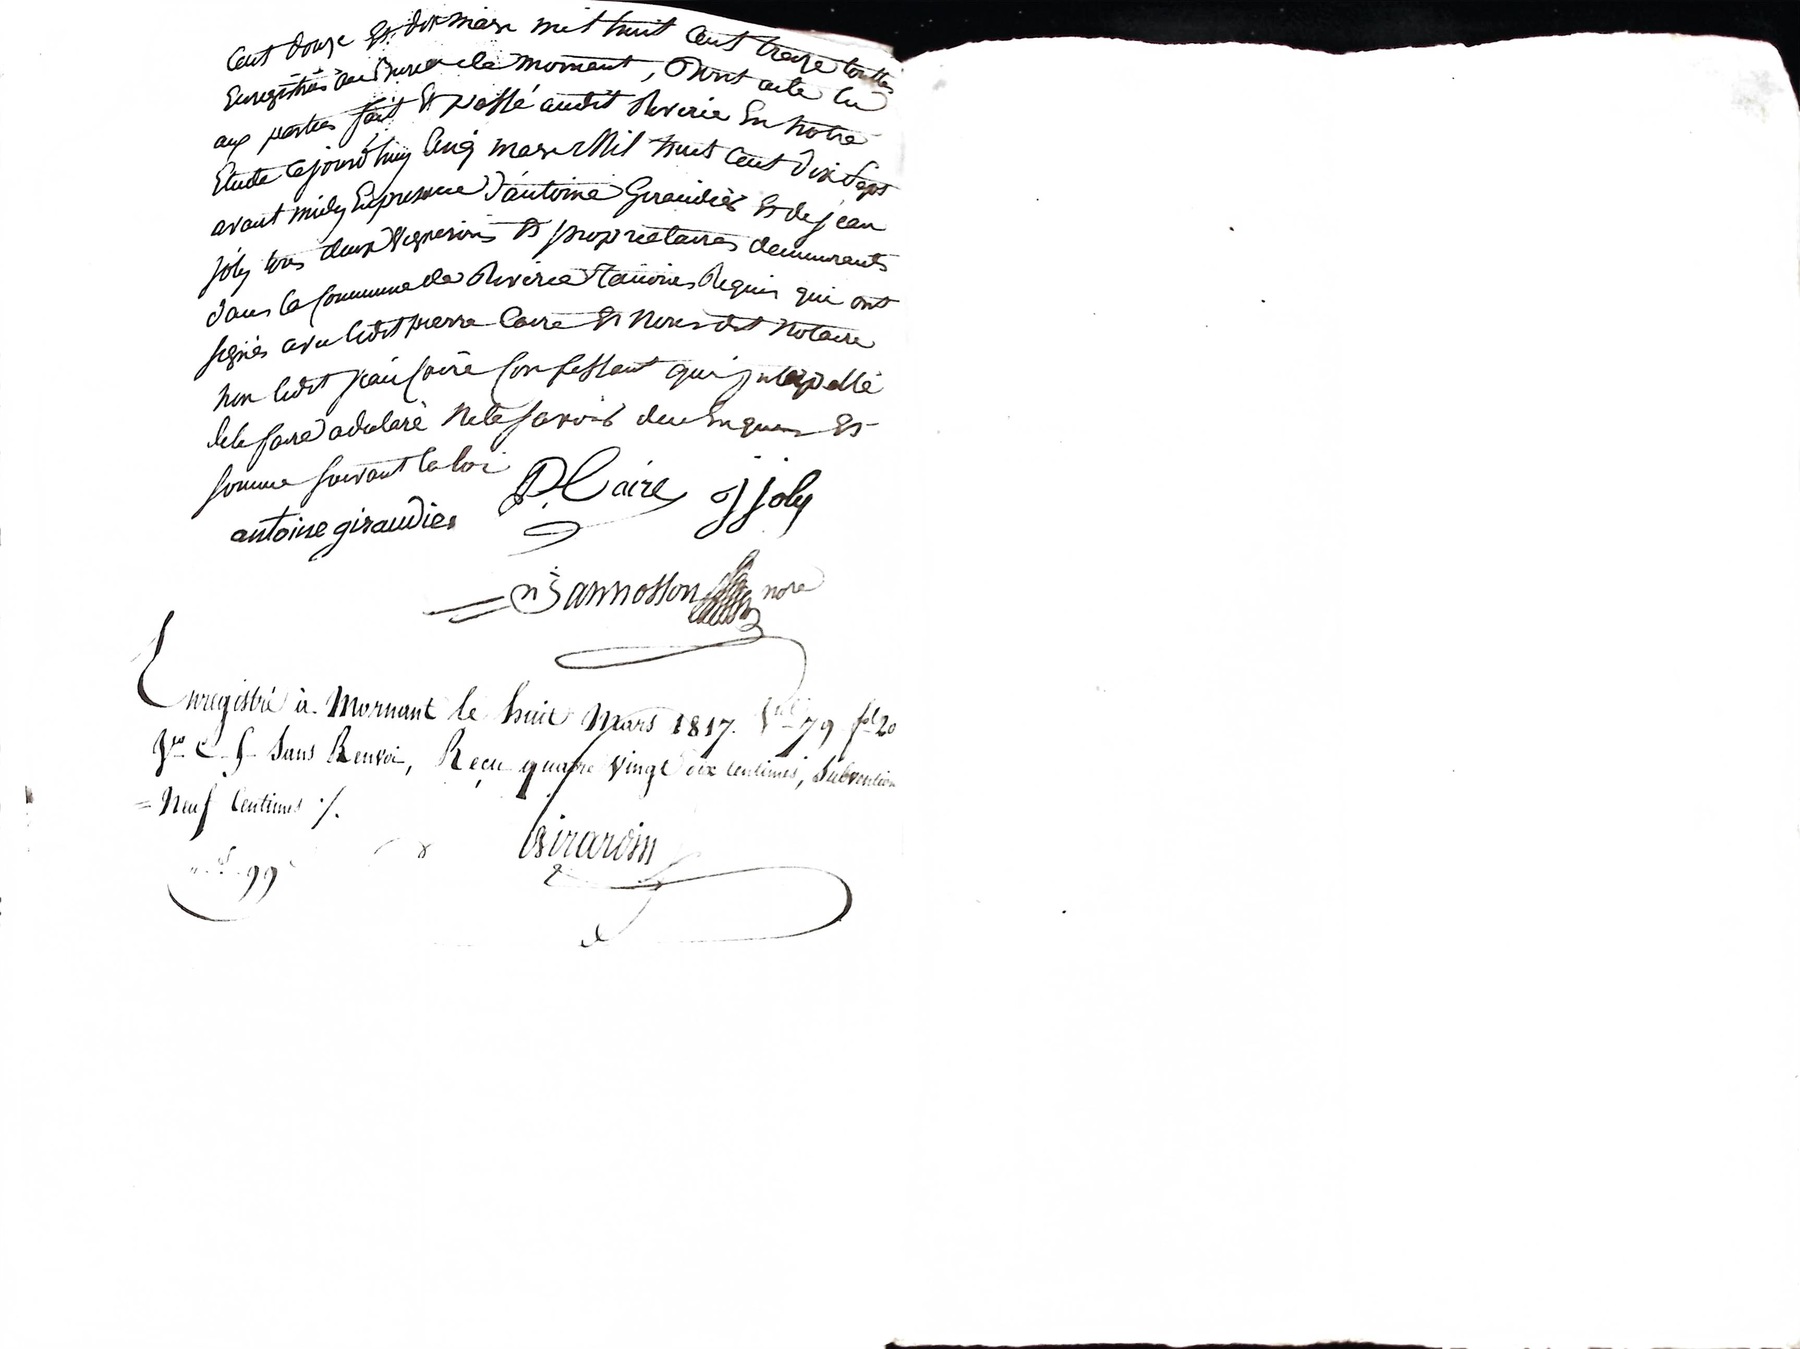 Cent douze Et dix mars mil huit Cent treze touttes
Enregistrés au Bureau de mornant, Dont acte lu
aux parties fait Et passé audit Riverie En notre
Etude cejourd'huy Cinq mars Mil huit Cent Dix Sept
avant midy En presence D'antoine Giraudier Et de jean
joly tous deux Vignerons Et proprietaires demeurants
dans la Commune de Riverie Temoins Requis qui ont
signés avec ledit pierre Caire Et Nous dit Notaire
non ledit jean Caire Confessant qui interpellé
de le faire a declaré Ne le savoir de ce Enquis Et
somme suivant la loi
P. Caire j joly
antoine giraudier
Bannosson nore
Enregistré à Mornant le huit Mars 1817. Vol 79 fol 20
Vo C. 5 Sans Renvoi, Reçu quatre vingt dix centimes, Subvention
= Neuf Centimes ./.
Girardin
99